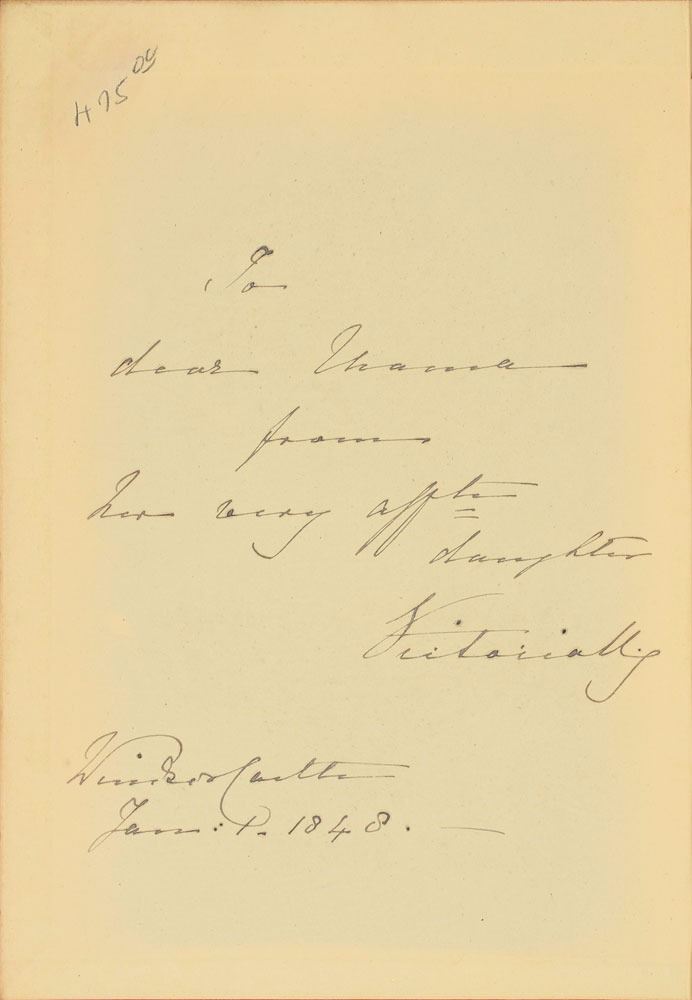 475 00
To
dear Mama
from
her very affte
daughter
Victoria R
Windsor Castle
Jan: 1. 1848.